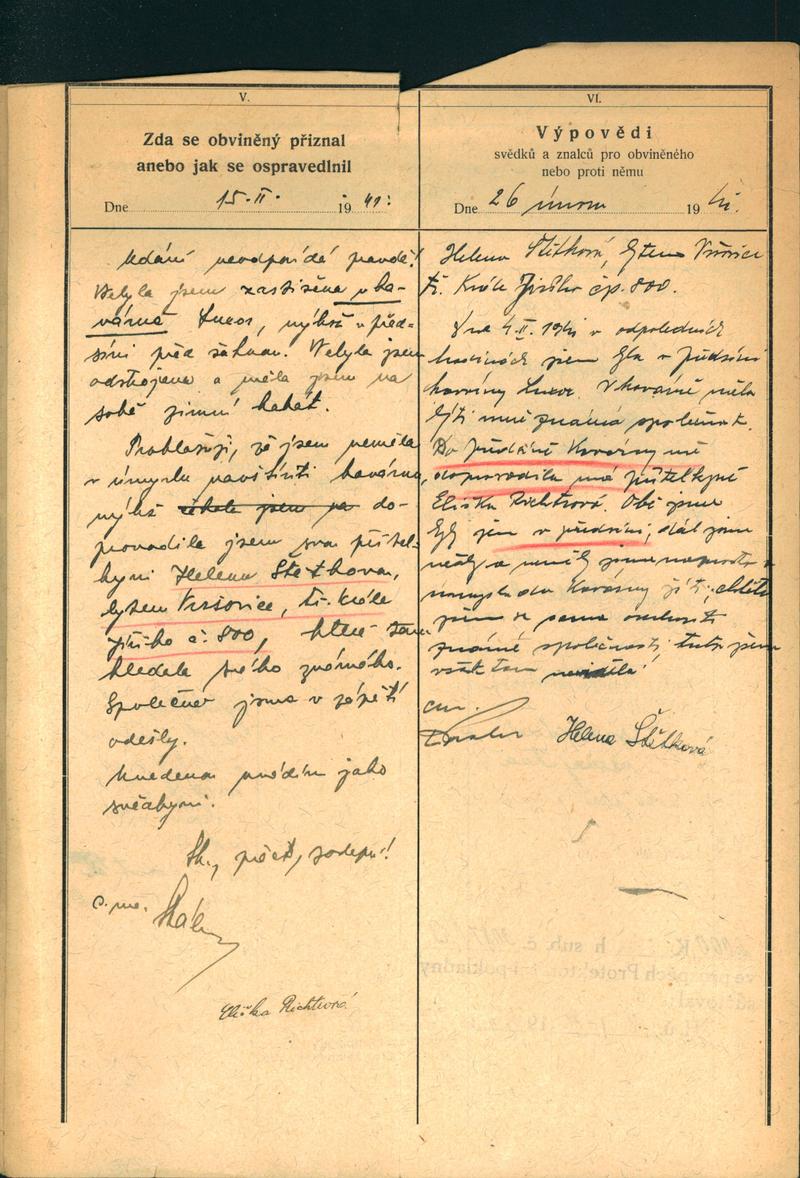 V.
Zda se obviněný přiznal
anebo jak se ospravedlnil
Dne 15. II. 1941:
Udání neodpovídá pravdě!
Nebyla jsem zastižena v ka-
várně Luxor, nýbrž v před-
síni před šatnou. Nebyla jsem
odstrojena a měla jsem na
sobě zimní kabát.
Prohlašuji, že jsem neměla
v úmyslu navštíviti kavárnu,
nýbrž do-
provodila jsem svou přítel-
kyni Helenu Štětkovou,
bytem Vršovice, tř. Krále
Jiřího č. 800, která tam
hledala svého známého.
Společně jsme v zápětí
odešly.
Uvedenou uvádím jako
svědkyni.
Sk., přečt., podeps.!
Eliška Richtrová
VI.
Výpovědi
svědků a znalců pro obviněného
nebo proti němu
Dne 26 února 1941.
Helena Štětková, bytem Vršovice
tř. Krále Jiřího čp. 800.
Dne 4. II. 1941 v odpoledních
hodinách jsem byla v předsíni
kavárny Luxor. V kavárně měla
býti mně známá společnost.
Do předsíně kavárny mě
doprovodila má přítelkyně
Eliška Richtrová. Obě jsme
byly jen v předsíni, dál jsme
nešly a neměly jsme naprosto v
úmyslu do kavárny jíti, chtěla
jsem se pouze
známé společnosti, tuto jsem
však tam neviděla!
Helena Štětková